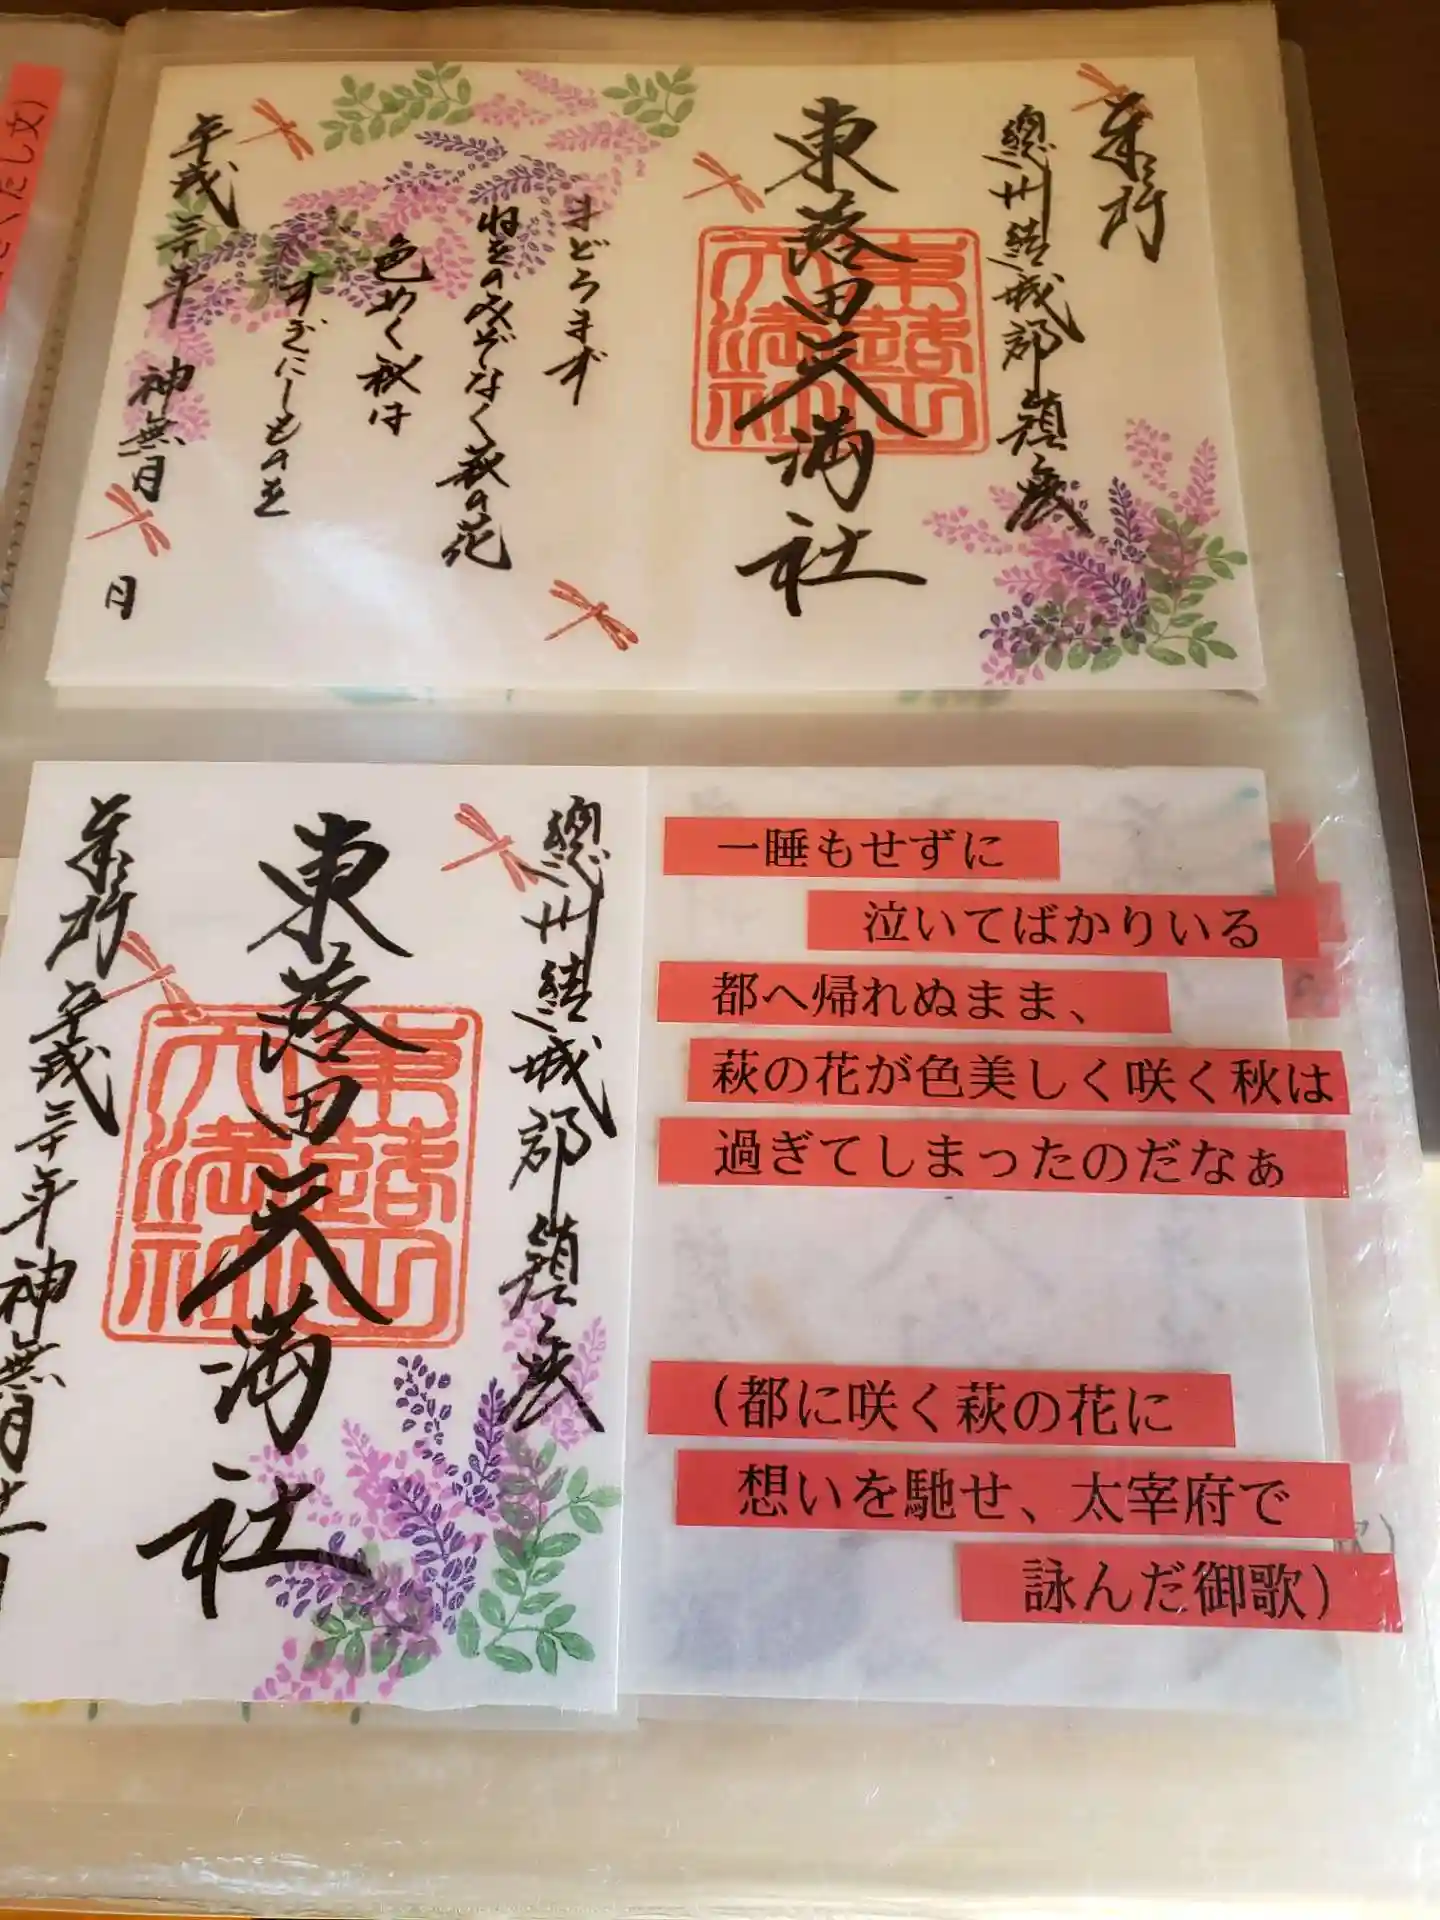 奉拝
總州結城郡鎮座
東蕗田天満社
まどろまず
ねをのみぞなく萩の花
色めく秋は
すぎにしものを
平成三十年
神無月
月
總州結城郡鎮座
東蕗田天満社
奉拝
平成三十年神無月
一睡もせずに
泣いてばかりいる
都へ帰れぬまま、
萩の花が色美しく咲く秋は
過ぎてしまったのだなぁ
(都に咲く萩の花に
想いを馳せ、太宰府で
詠んだ御歌)